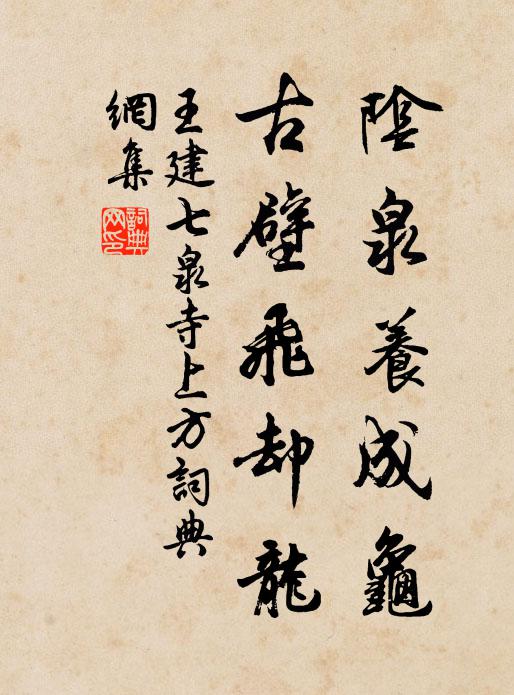 陰泉養成龜
古壁飛却龍
王建七泉寺上方詞典
網集
詞典
网印